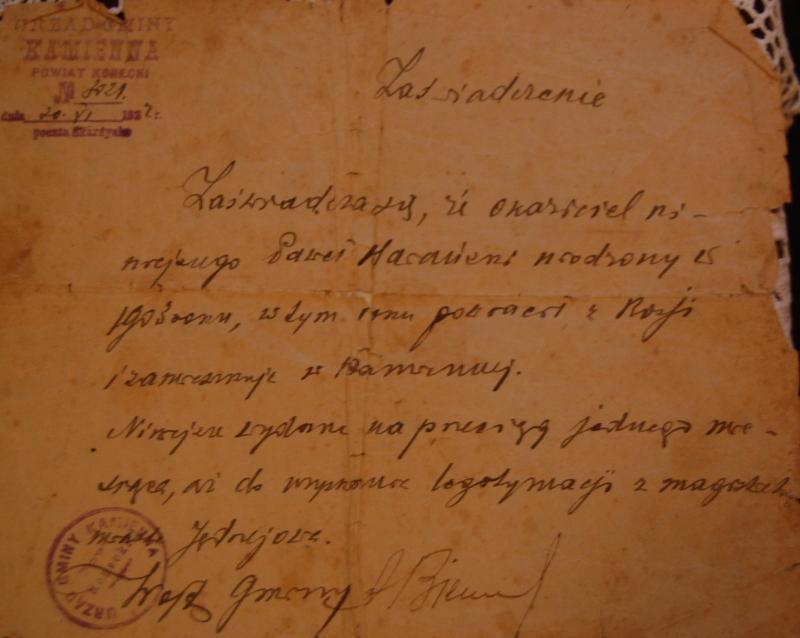 URZĄD GMINY
KAMIENNA
POWIAT KONECKI
№ 8421.
dnia 20. VI 1922 r.
poczta Skarżysko
Zaświadczenie
Zaświadcza się, że okaziciel ni-
niejszego Paweł urodzony w
1905 roku, w tym roku powrócił z Rosji
i zamieszkuje w Kamiennej.
Niniejsze wydane na przeciąg jednego mie-
siąca, aż do wyrobienia legitymacji z magistratu
miasta Jędrzejowa.
Wójt Gminy
URZĄD GMINY KAMIENNA